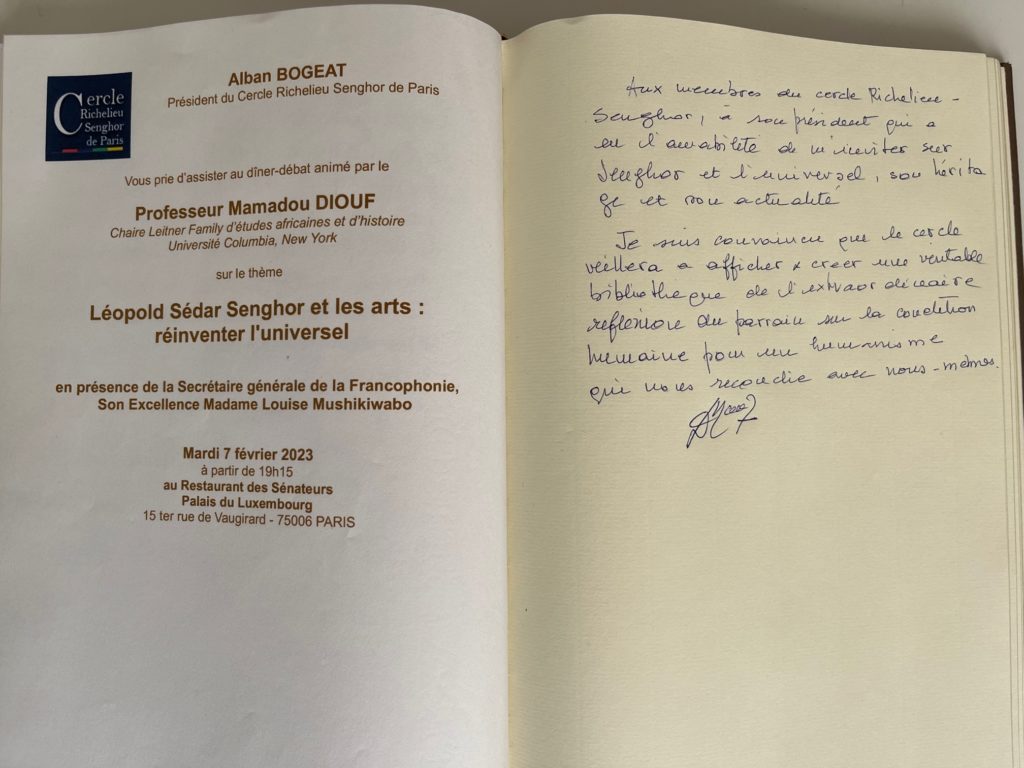 Cercle
Richelieu
Senghor
de Paris
Alban BOGEAT
Président du Cercle Richelieu Senghor de Paris
Vous prie d'assister au dîner-débat animé par le
Professeur Mamadou DIOUF
Chaire Leitner Family d'études africaines et d'histoire
Université Columbia, New York
sur le thème
Léopold Sédar Senghor et les arts :
réinventer l'universel
en présence de la Secrétaire générale de la Francophonie,
Son Excellence Madame Louise Mushikiwabo
Mardi 7 février 2023
à partir de 19h15
au Restaurant des Sénateurs
Palais du Luxembourg
15 ter rue de Vaugirard - 75006 PARIS
Aux membres du cercle Richelieu-
Senghor, à son président qui a
eu l'amabilité de m'inviter sur
Senghor et l'universel, son hérita
ge et son actualité
Je suis convaincu que le cercle
veillera a afficher & creer une véritable
bibliotheque de l'extraordinaire
reflexion du parrain sur la condition
humaine pour un humanisme
qui nous reconcilie avec nous-mêmes.